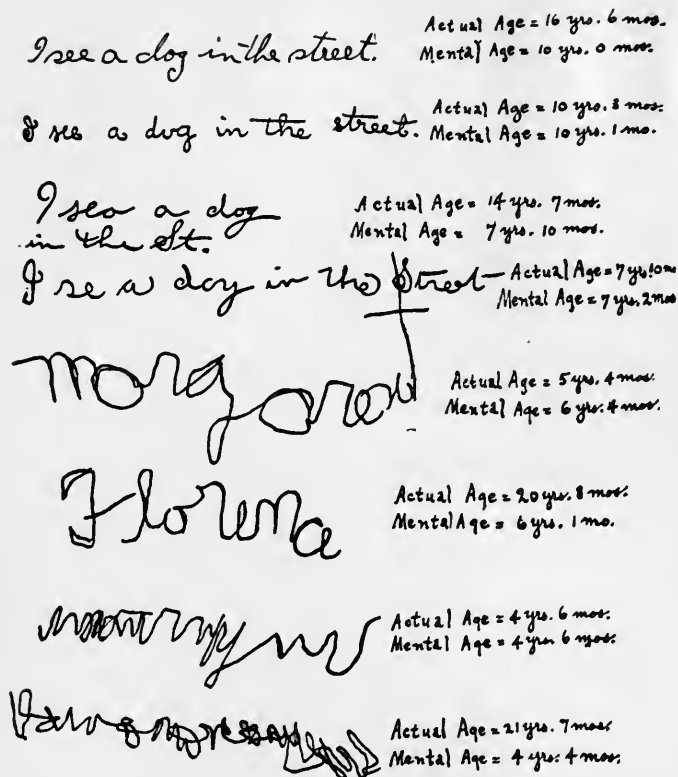 I see a dog in the street.
Actual Age = 16 yrs. 6 mos.
Mental Age = 10 yrs. 0 mos.
I see a dog in the street.
Actual Age = 10 yrs. 8 mos.
Mental Age = 10 yrs. 1 mo.
I sea a dog
in the St.
Actual Age = 14 yrs. 7 mos.
Mental Age = 7 yrs. 10 mos.
I se a dog in the Street
Actual Age = 7 yrs. 10 mo
Mental Age = 7 yrs. 2 mos
Margaret
Actual Age = 5 yrs. 4 mos.
Mental Age = 6 yrs. 4 mos.
Florena
Actual Age = 20 yrs. 8 mos.
Mental Age = 6 yrs. 1 mo.
Actual Age = 4 yrs. 6 mos.
Mental Age = 4 yrs. 6 mos.
Actual Age = 21 yrs. 7 mos.
Mental Age = 4 yrs. 4 mos.